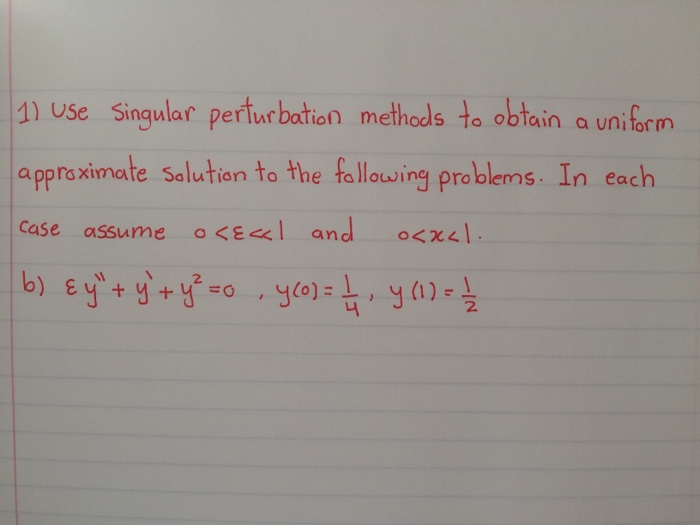 1) Use singular perturbation methods to obtain a uniform
approximate solution to the following problems. In each
case assume 0<ε≪1 and 0<x<1.
b) εy'' + y' + y² = 0 , y(0) = 1/4 , y(1) = 1/2